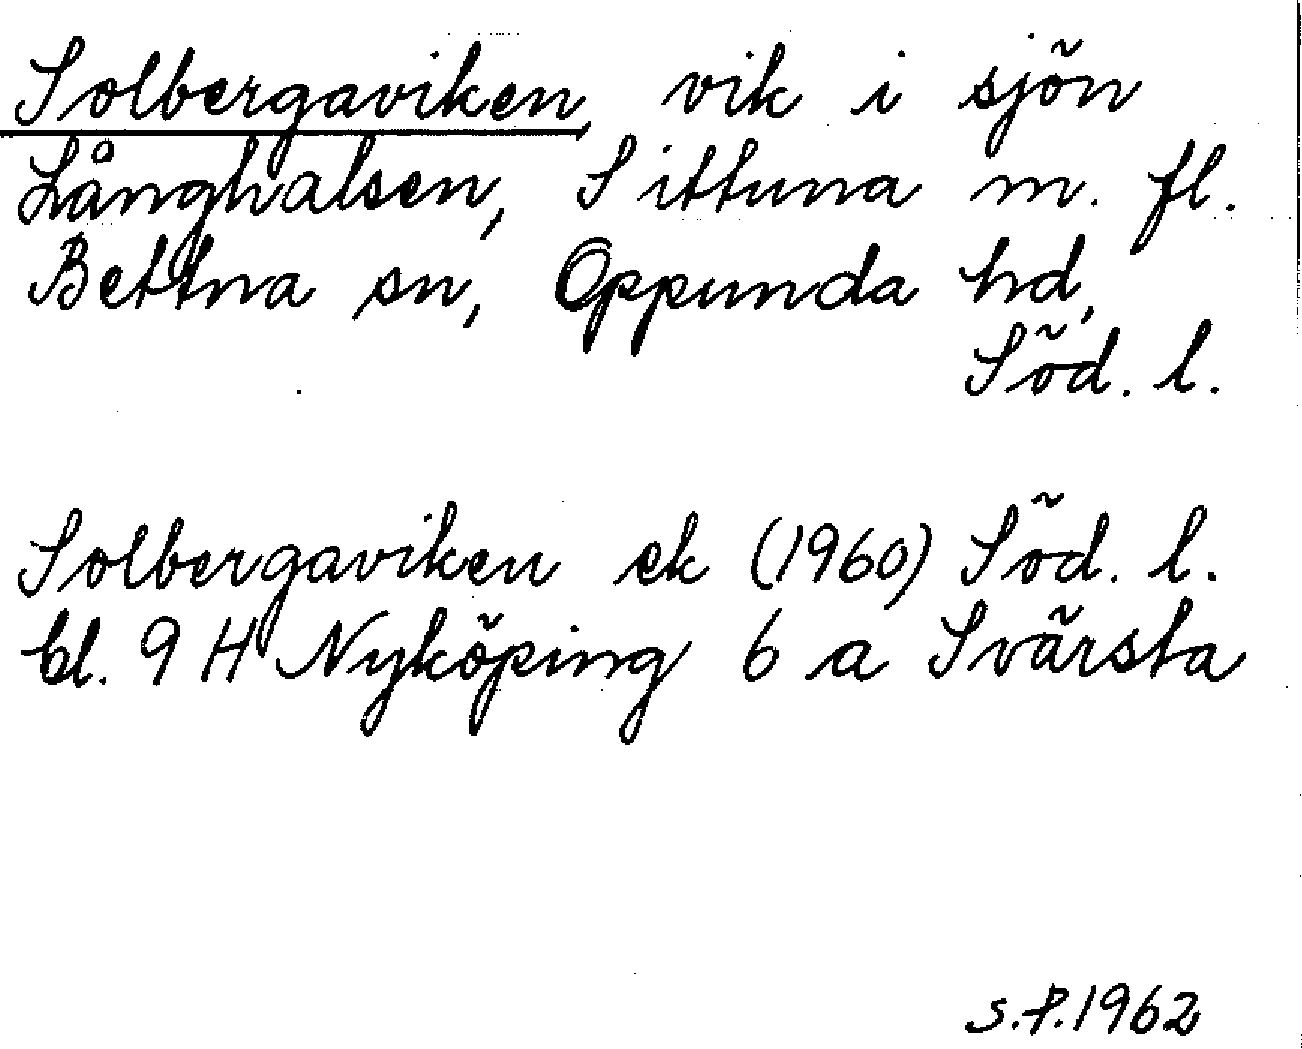 Solbergaviken, vik i sjön
Långhalsen, Sittuna m. fl.
Bettna sn, Oppunda hd,
Söd. l.
Solbergaviken ek (1960) Söd. l.
bl. 9 H Nyköping 6 a Svärsta
S.P. 1962